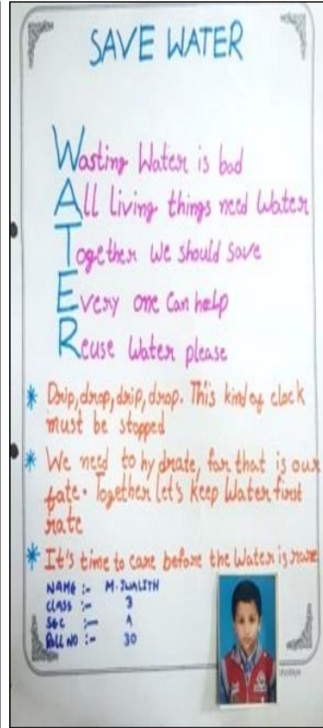 SAVE WATER
Wasting Water is bad
All living things need Water
Together we should save
Every one can help
Reuse Water please
* Drip, drop, drip, drop. This kind of clock
must be stopped
* We need to hydrate, for that is our
fate. Together let's keep Water first
rate
* It's time to care before the Water is rare
NAME :- M. JWALITH
CLASS :- 3
SEC :- A
ROLL NO :- 30